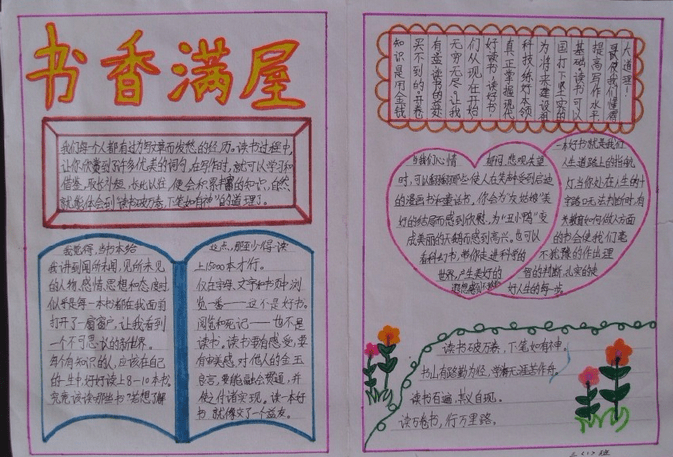 书香满屋
我们每个人都有过为写文章而发愁的经历。读书过程中,
让你欣赏到了许多优美的词句,在写作时,就可以学习和
借鉴,取长补短,长此以往,便会积累丰富的知识,自然
就能体会到"读书破万卷,下笔如有神"的道理了。
我觉得,当书本给
我讲到闻所未闻,见所未见
的人物、感情、思想和态度时
似乎是每一本书都在我面前
打开了一扇窗户,让我看到
一个不可思议的新世界。
每个有知识的人,应该在自己
的一生中,好好读上8-10本书。
究竟该读哪些书
这点,那至少得读
上15000本才行。
仅在字母、文字和书页中浏
览一番——这不是好书。
阅览和死记——也不是
读书。读书要有感受,要
有审美感,对他人的金玉
良言,要能融会贯通,并
使之付诸实现。读一本好
书,就像交了一个益友。
知识是用金钱
买不到的。开卷
有益,读书的益处
无穷无尽。让我
们从现在开始
好读书,读好书!
真正掌握现代
科技,练好本领
为将来建设祖
国打下坚实的
基础。读书可以
提高写作水平
使我们懂得
大道理!
当我们心情 郁闷、悲观失望
时,可以翻翻那些使人在笑料中受到启迪
的漫画书和童话书,你会为"灰姑娘"美
好的结局而感到欣慰,为"丑小鸭"变
成美丽的天鹅而感到高兴。也可以
看科幻书,带你走进科学的
世界,产生美好的
一本好书就是我们
人生道路上的指航
灯,当你处在人生的十
字路口无法判断时,有
关教育如何做人方面
的书会使我们毫
不犹豫的作出理
智的判断,扎实的走
好人生的每一步。
读书破万卷,下笔如有神。
书山有路勤为径,学海无涯苦作舟。
读书百遍,其义自现。
读万卷书,行万里路。